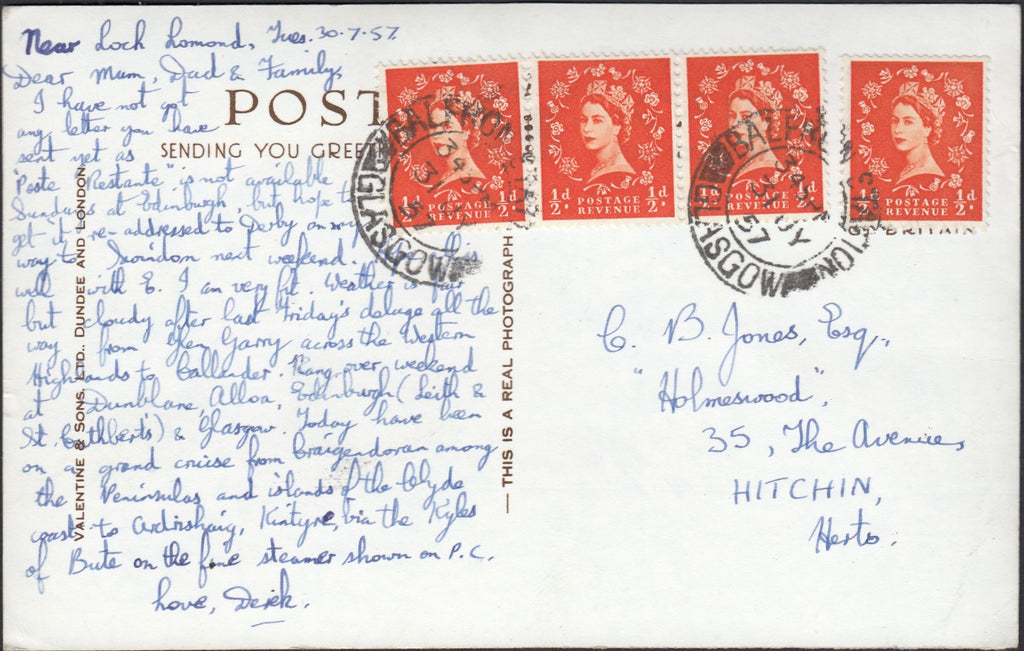 Near Loch Lomond, Tues. 30-7-57
Dear Mum, Dad & Family,
I have not got
any letter you have
sent yet as
"Poste Restante" is not available
Sundays at Edinburgh, but hope to
get it re-addressed to Derby on my
way to Swindon next weekend.
well with E. I am very fit. Weather is fair
but cloudy after last Friday's deluge all the
way from Glen Garry across the Western
Highlands to Callander. Rang over weekend
at Dunblane, Alloa, Edinburgh (Leith &
St. Cuthbert's) & Glasgow. Today have been
on a grand cruise from Craigendoran among
the Peninsulas and islands of the Clyde
coast to Ardrishaig, Kintyre, via the Kyles
of Bute on the fine steamer shown on P.C.
Love, Derek.
POST
SENDING YOU GREET
VALENTINE & SONS, LTD., DUNDEE AND LONDON
— THIS IS A REAL PHOTOGRAPH
BRITAIN
½d ½d
POSTAGE
REVENUE
½d ½d
POSTAGE
REVENUE
½d ½d
POSTAGE
REVENUE
½d ½d
POSTAGE
REVENUE
BALFRON
31
57
GLASGOW
BALFRON
STATION
31 JY
57
GLASGOW
C. B. Jones, Esq.,
"Holmeswood",
35, The Avenue,
HITCHIN,
Herts.